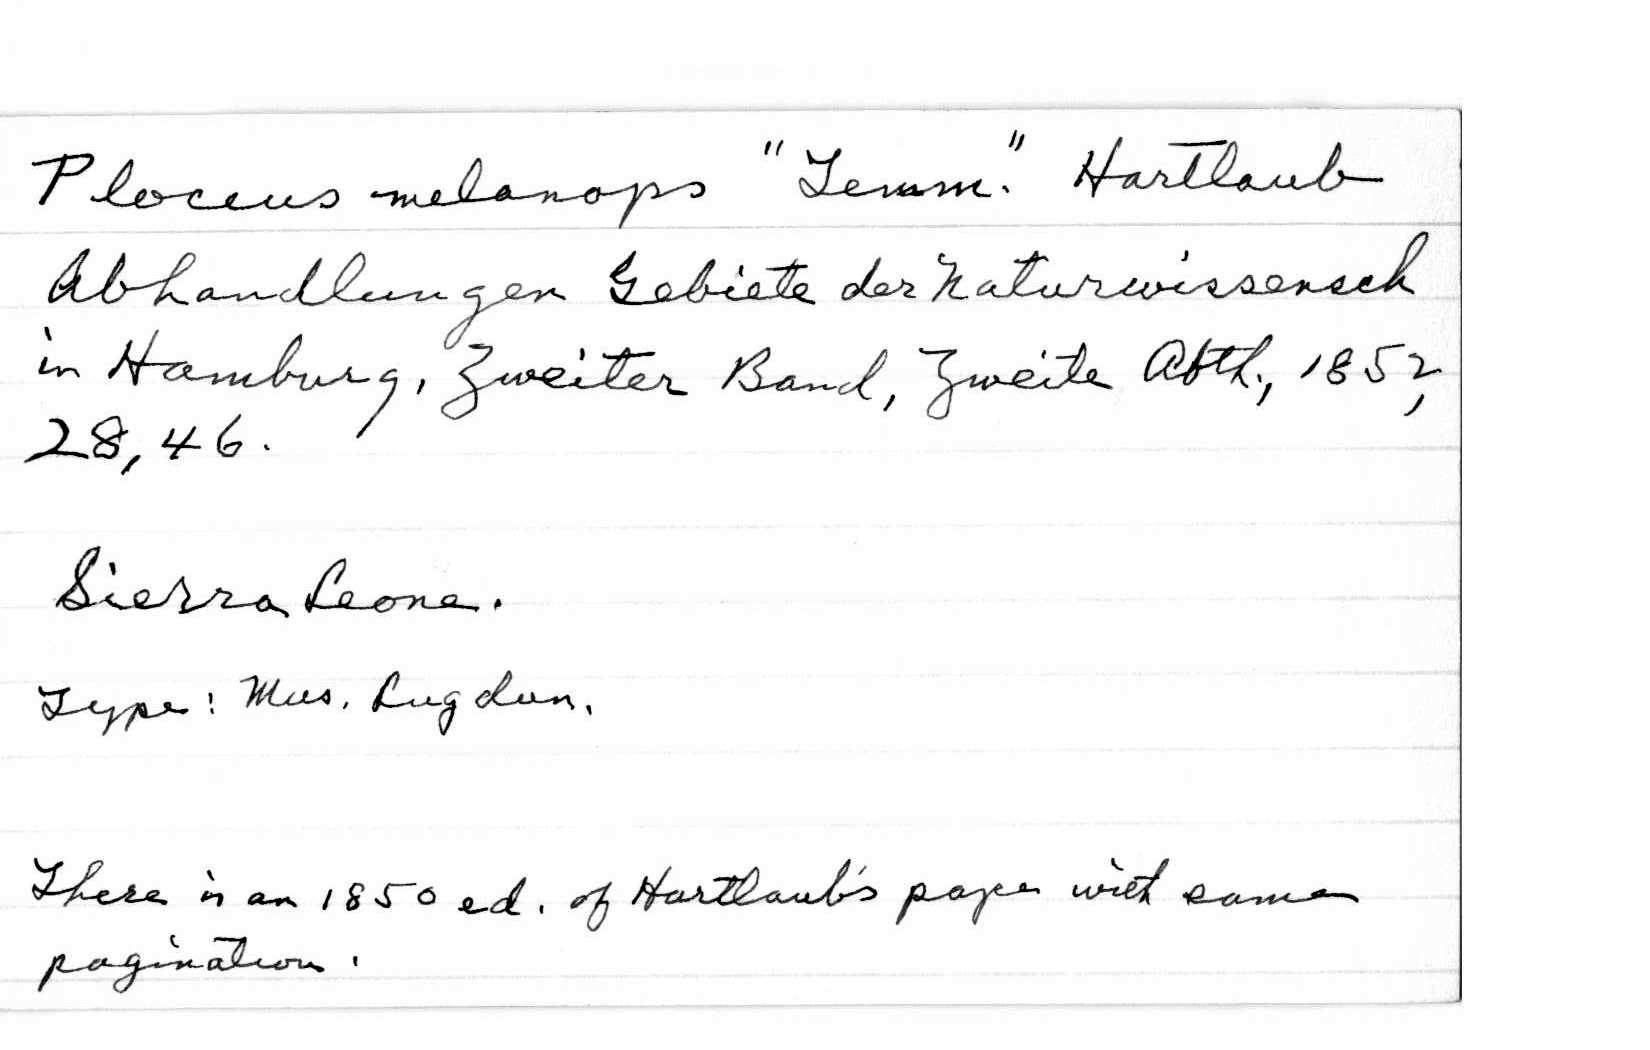 Ploceus melanops "Temm." Hartlaub
Abhandlungen Gebiete der Naturwissensch
in Hamburg, Zweiter Band, Zweite Abth., 1852,
28, 46.
Sierra Leone.
Type: Mus. Lugdun.
There is an 1850 ed. of Hartlaub's paper with same
pagination.